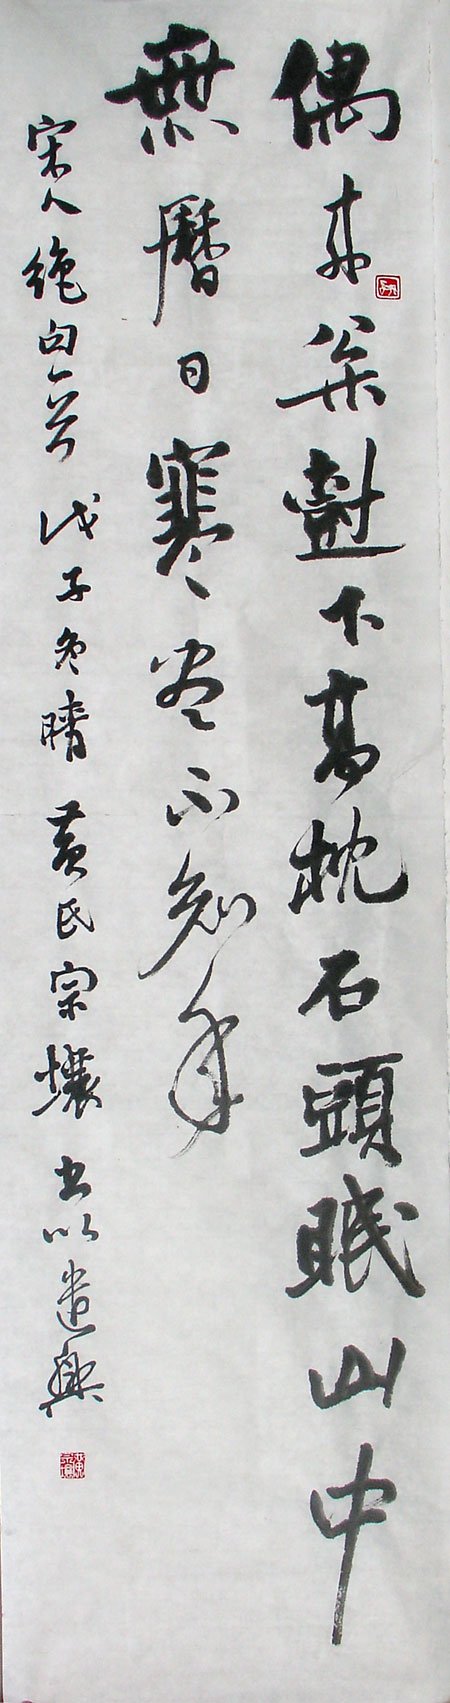 偶來枀樹下高枕石頭眠山中
無曆日寒尽不知年
宋人絶句一首 戊子冬晴 黄氏宗壤 書以遣興